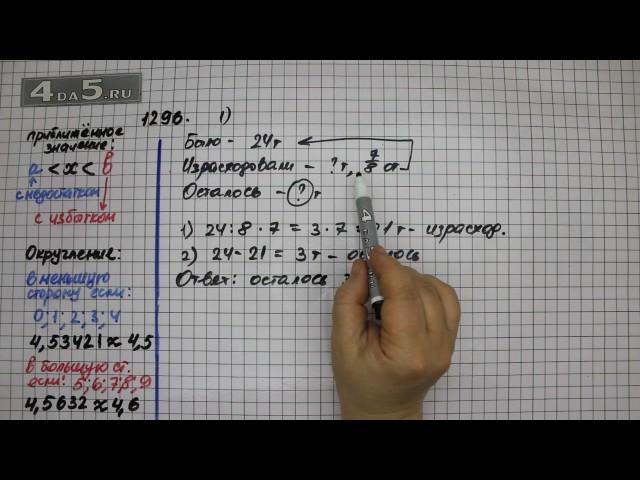 4DA5.RU
1296. 1)
приближённое
значение:
а < x < в
с недостатком
с избытком
Округление:
в меньшую
сторону если:
0; 1; 2; 3; 4
4,53421 ≈ 4,5
в большую ст.
если: 5; 6; 7; 8; 9
4,5632 ≈ 4,6
Было - 24т
Израсходовали - ? т, 7/8 от
Осталось - ? т
1) 24 : 8 · 7 = 3 · 7 = 21т - израсход.
2) 24 - 21 = 3 т - осталось
Ответ: осталось